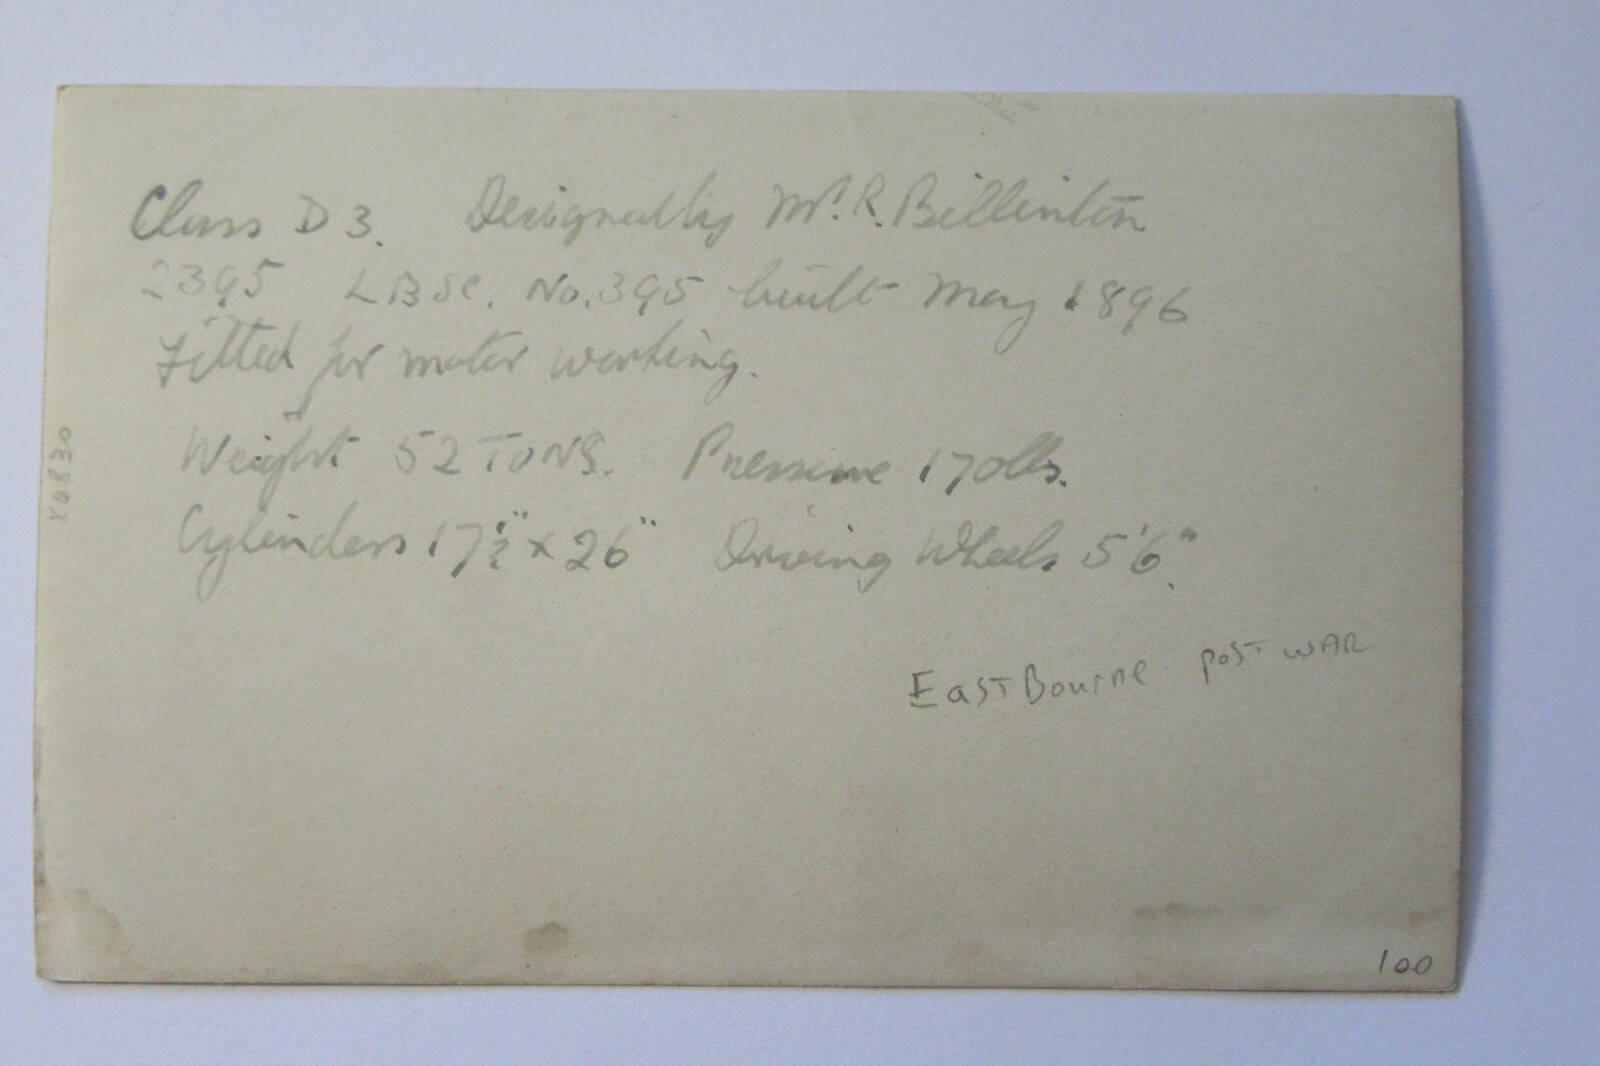 Class D 3. Designed by Mr. R. Billinton
2395 LBSC. No. 395 built May 1896
Fitted for motor working.
Weight 52 TONS. Pressure 170lbs.
Cylinders 17½" x 26" Driving Wheels 5'6".
EastBourne post WAR
100
X6830